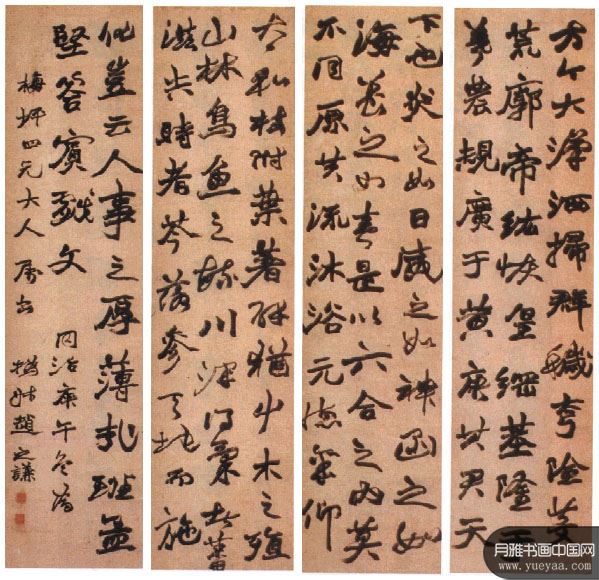 方今大漢洒掃群穢夷險芟
荒廓帝紘恢皇綱基隆于
羲農規廣于黃唐其君天
下也炎之如日威之如神函之如
海養之如春是以六合之內莫
不同原共流沐浴元德稟仰
太和枝附葉著辟猶艸木之殖
山林鳥魚之毓川澤得氣者蕃
滋失時者苓落參天地而施
化豈云人事之厚薄哉班孟
堅答賓戲文 同治庚午冬爲
梅坪四兄大人屬書 撝叔趙之謙
月雅书画中国网
www.yueyaa.com